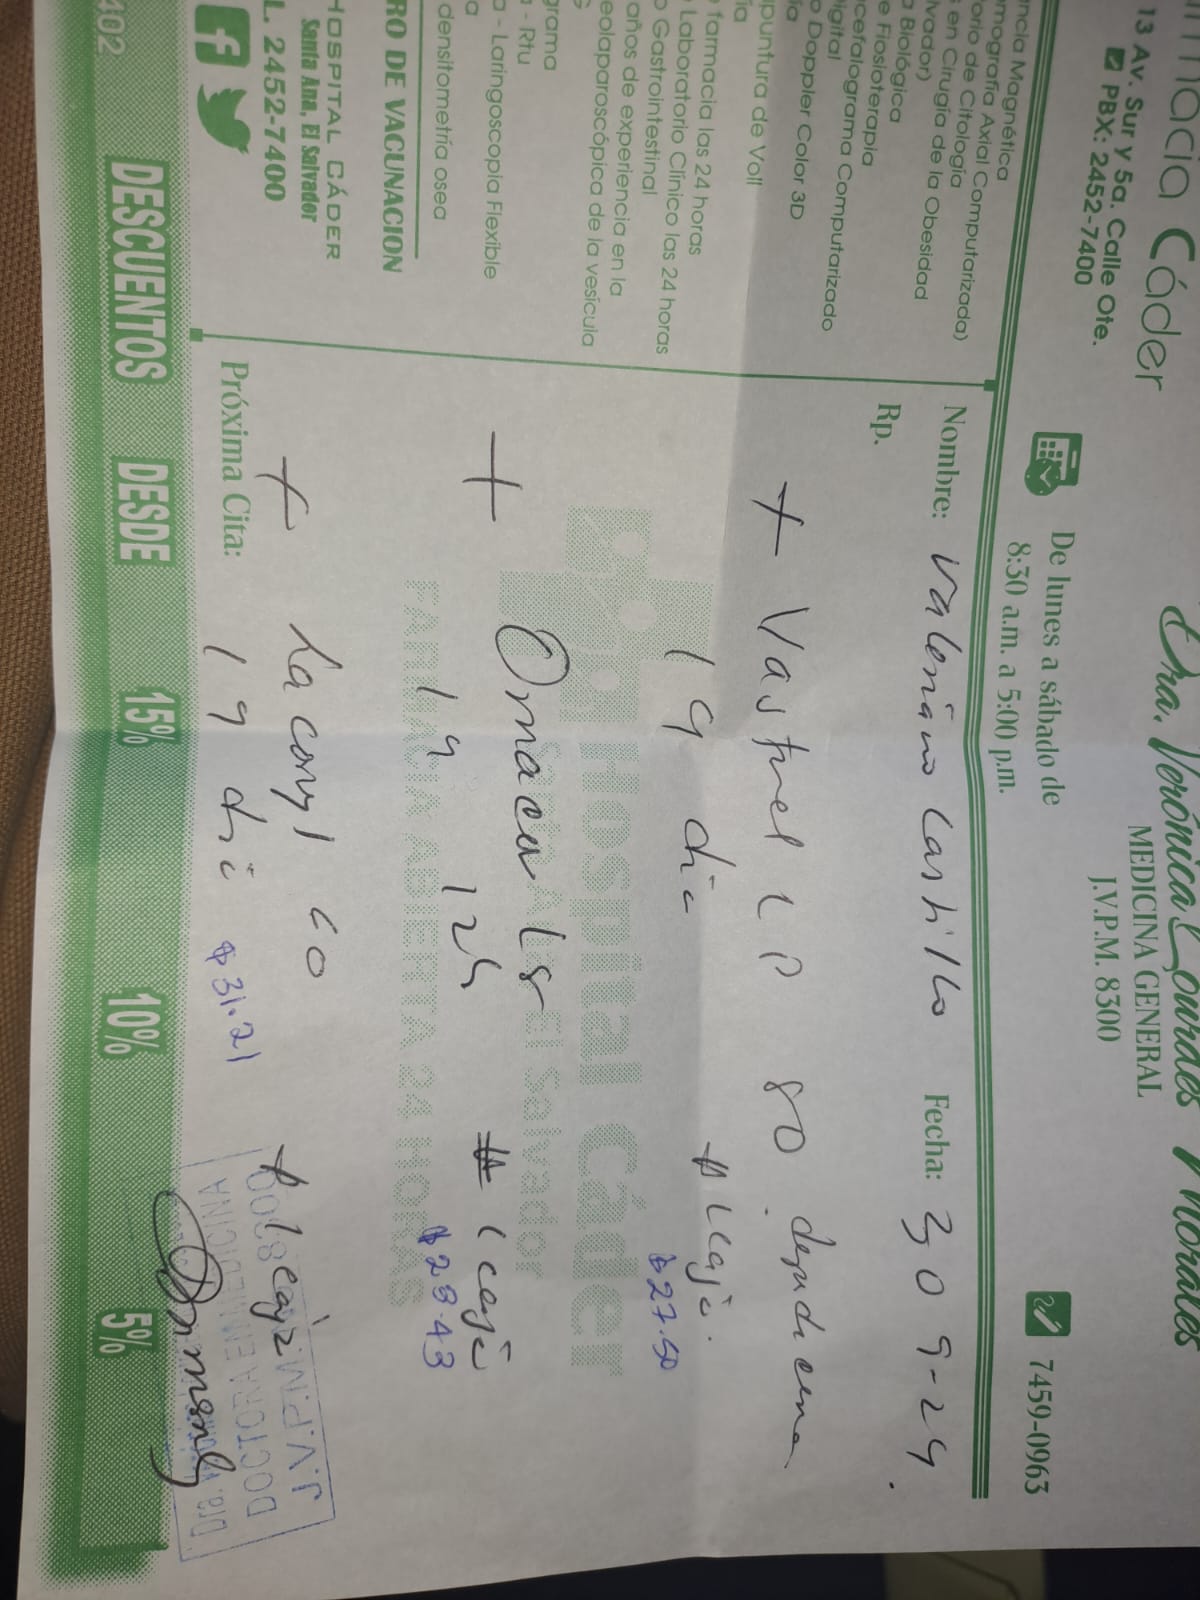 Farmacia Cáder
13 Av. Sur y 5a. Calle Ote.
PBX: 2452-7400
Dra. Verónica Lourdes Morales
MEDICINA GENERAL
J.V.P.M. 8300
De lunes a sábado de
8:30 a.m. a 5:00 p.m.
7459-0963
ncia Magnética
mografía Axial Computarizada)
torio de Citología
s en Cirugía de la Obesidad
lvador)
a Biológica
e Fiosioterapia
cefalograma Computarizado
igital
o Doppler Color 3D
ía
puntura de Voll
ía
farmacia las 24 horas
Laboratorio Clínico las 24 horas
o Gastrointestinal
años de experiencia en la
eolaparoscópica de la vesícula
G
grama
a - Rtu
a - Laringoscopia Flexible
a
densitometría osea
RO DE VACUNACION
HOSPITAL CÁDER
Santa Ana, El Salvador
L. 2452-7400
Nombre: Valeriano Castillo Fecha: 30 9-24.
Rp.
+ Vastarel LP 80
19 dia # 1 caja.
$27.50
Hospital Cáder
Santa Ana, El Salvador
FARMACIA ABIERTA 24 HORAS
+ Omacor
19 12h # 1 caja
+ Laconyl 60 # 1 caja
Próxima Cita: 19 dia $31.21
J.V.P.M. 8300
DOCTORA EN MEDICINA
Dra.
402 DESCUENTOS DESDE 15% 10% 5%